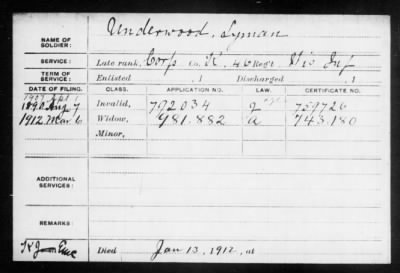 NAME OF SOLDIER: Underwood, Lyman
SERVICE: Late rank, Corp Co. K, 46 Reg't Wis Inf
TERM OF SERVICE: Enlisted , 1 Discharged , 1
DATE OF FILING. CLASS. APPLICATION NO. LAW. CERTIFICATE NO.
1890 Aug 7 Invalid, 792034 759726
1912 Mar 6 Widow, 981.882 a 743.180
Minor,
ADDITIONAL SERVICES:
REMARKS:
Died Jan 13, 1912, at